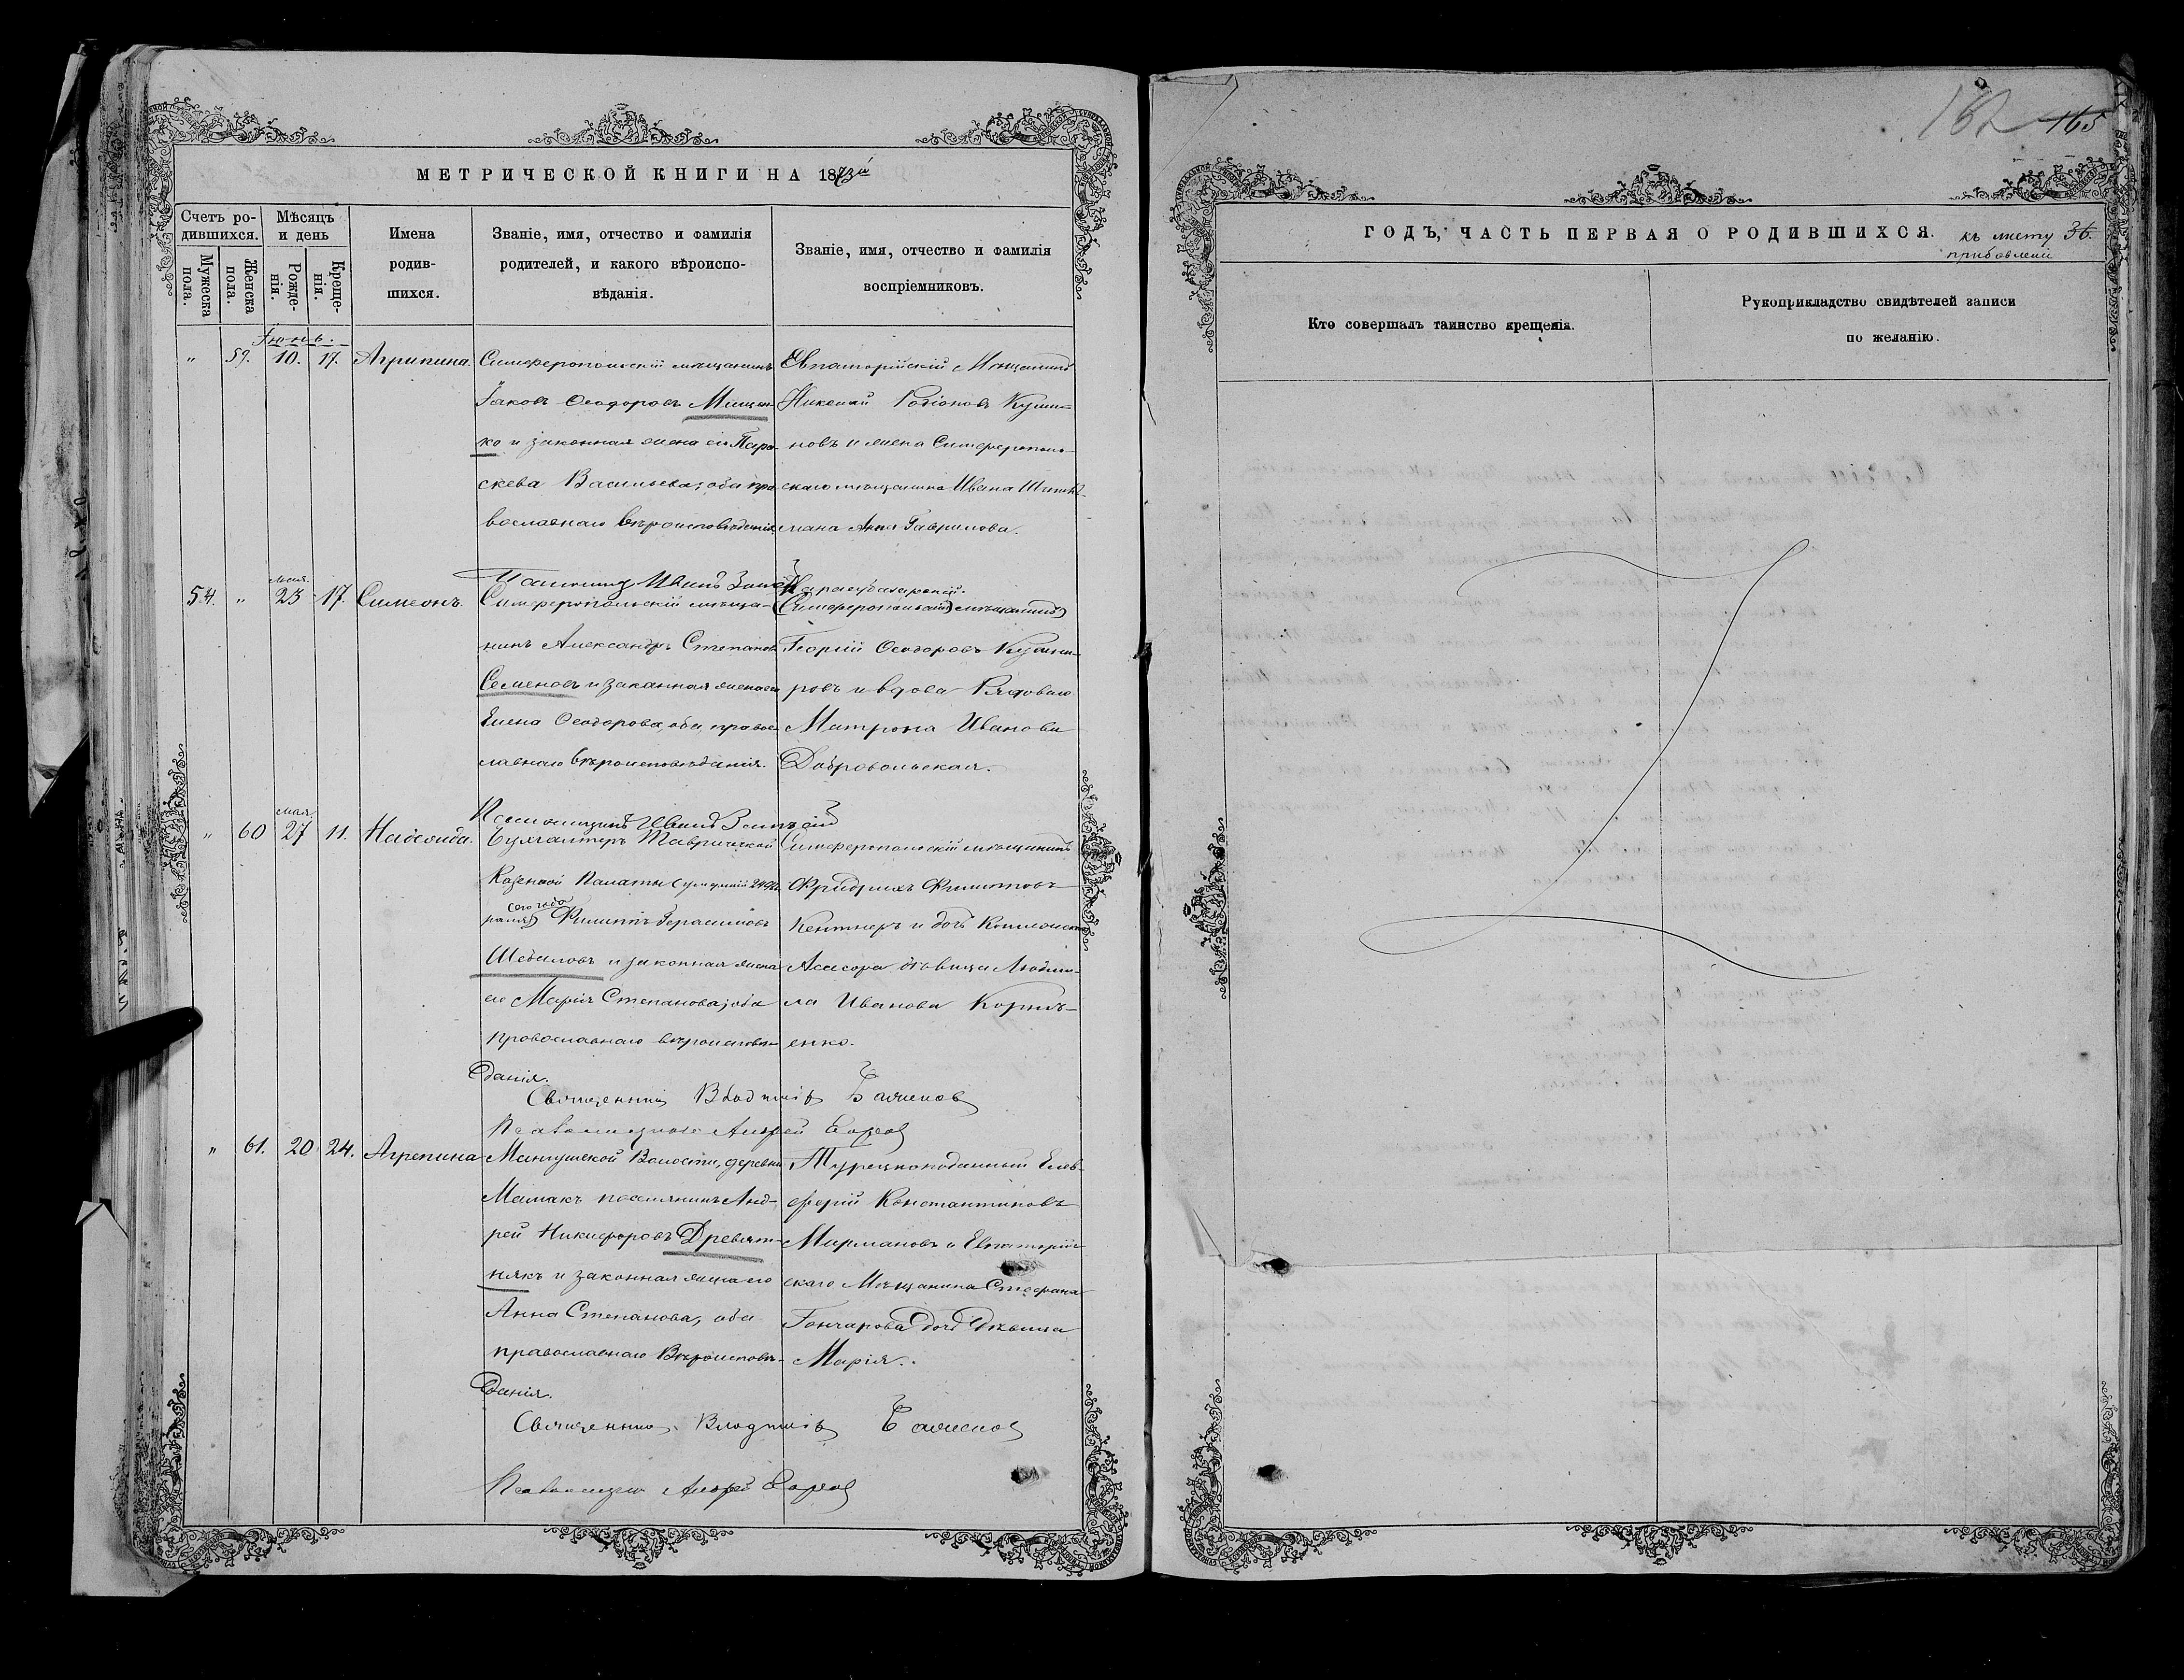 МЕТРИЧЕСКОЙ КНИГИ НА 1873й
Счетъ родившихся.
Мѣсяцъ и день
Имена родившихся.
Званіе, имя, отчество и фамилія родителей, и какого вѣроисповѣданія.
Званіе, имя, отчество и фамилія воспріемниковъ.
Мужеска пола.
Женска пола.
Рожденія.
Крещенія.
Іюнь.
" 59. 10. 17. Агрипина.
Симферопольскій мѣщанинъ
Іаковъ Ѳеодоровъ Мищен-
ко и законная жена его Пара-
скева Васильева, оба пра-
вославнаго вѣроисповѣданія.
Евпаторійскій Мѣщанинъ
Николай Родіоновъ
новъ и жена Симферополь-
скаго мѣщанина Ивана
мана Анна Гаврилова.
54. " мая 23 17. Симеонъ.
Симферопольскій мѣща-
нинъ Александръ Степановъ
Семеновъ и законная жена его
Елена Ѳеодорова, оба правос-
лавнаго вѣроисповѣданія.
Карасубазарскій
(Симферопольскій) мѣщанинъ
Георгій Ѳеодоровъ
ровъ и вдова Рядоваго
Матрона Иванова
Добровольская.
" 60 мая 27 11. Надежда.
Бухгалтеръ Таврической
Казенной Палаты
сего года
Филиппъ Герасимовъ
Шедаловъ и законная жена
его Марія Степанова, оба
православнаго вѣроисповѣ-
данія.
Симферопольскій мѣщанинъ
Фридрихъ Филиповъ
Кентнеръ и дочь Коллежскаго
Асесора дѣвица Людми-
ла Иванова Корнѣ-
енко.
Священникъ Владиміръ Баженовъ
Псаломщикъ Андрей
" 61. 20 24. Агрепина
Мангушской Волости, деревни
Мамакъ поселянинъ Анд-
рей Никифоровъ Древет-
някъ и законная жена его
Анна Степанова, оба
православнаго Вѣроисповѣ-
данія.
Турецкоподанный Елев-
ферій Константиновъ
Мирмановъ и Евпаторій-
скаго Мѣщанина Стефана
Гончарова дочь дѣвица
Марія.
Священникъ Владиміръ Баженовъ
Псаломщикъ Андрей
162 165
ГОДЪ, ЧАСТЬ ПЕРВАЯ О РОДИВШИХСЯ.
къ листу 36.
прибавленіе
Кто совершалъ таинство крещенія.
Рукоприкладство свидѣтелей записи
по желанію.